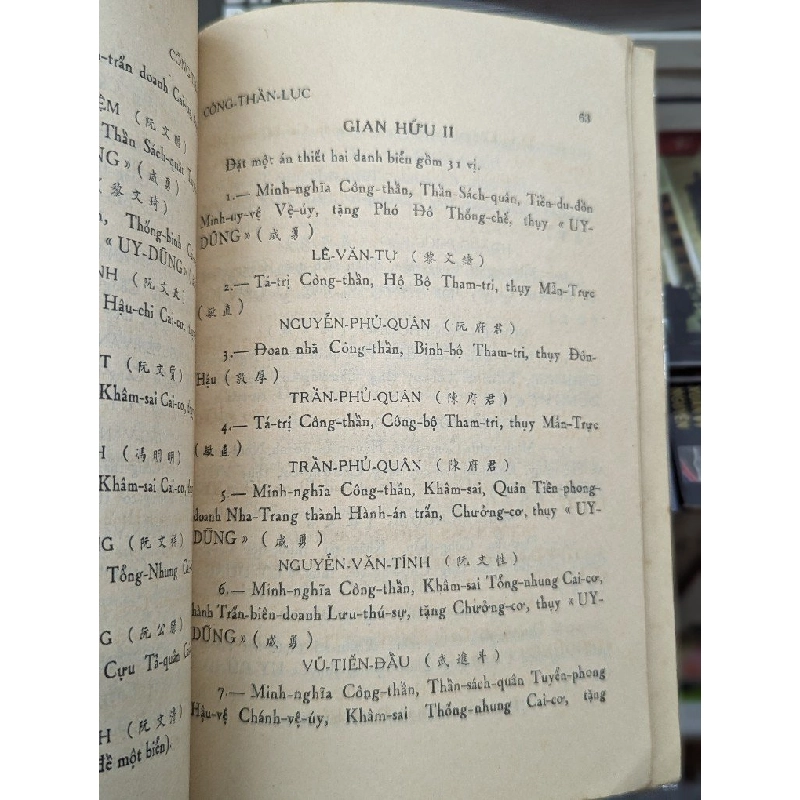 CÔNG-T
n-trấn doanh Cai-cơ
ỆM (阮文
Thần Sách-quân
NG» (威勇)
(黎文琦)
n, Thống-binh C
«UY-DŨNG» (
NH (阮文
Hậu-chi Cai-cơ,
T (阮文質)
Khâm-sai Cai-cơ,
H (馮
Khâm-sai Cai-cơ,
NG (阮文祥)
Tổng-Nhung Cai-
NG (阮公
Cựu Tả-quân Cai
H (阮文清)
đề một biển).
CÔNG-THẦN-LỤC
63
GIAN HỮU II
Đặt một án thiết hai danh biển gồm 31 vị.
1.— Minh-nghĩa Công-thần, Thần Sách-quân, Tiền-du-đồn
Minh-uy-vệ Vệ-úy, tặng Phó Đô Thống-chế, thụy « UY-
DŨNG» (威勇)
LÊ-VĂN-TỰ (黎文
2.— Tá-trị Công-thần, Hộ Bộ Tham-tri, thụy Mẫn-Trực
(敏直)
NGUYỄN-PHỦ-QUÂN (阮府君)
3.— Đoan nhã Công-thần, Binh-bộ Tham-tri, thụy Đôn-
Hậu (敦厚)
TRẦN-PHỦ-QUÂN (陳府君)
4.— Tá-trị Công-thần, Công-bộ Tham-tri, thụy Mẫn-Trực
(敏直)
TRẦN-PHỦ-QUÂN (陳府君)
5.— Minh-nghĩa Công-thần, Khâm-sai, Quản Tiền-phong-
doanh Nha-Trang thành Hành-án trấn, Chưởng-cơ, thụy « UY-
DŨNG» (威勇)
NGUYỄN-VĂN-TÍNH (阮文性)
6.— Minh-nghĩa Công-thần, Khâm-sai Tổng-nhung Cai-cơ,
hành Trấn-biên-doanh Lưu-thú-sự, tặng Chưởng-cơ, thụy « UY-
DŨNG» (威勇)
VŨ-TIẾN-ĐẨU (武進斗)
7.— Minh-nghĩa Công-thần, Thần-sách-quân Tuyển-phong
Hậu-vệ Chánh-vệ-úy, Khâm-sai Thống-nhung Cai-cơ, tặng